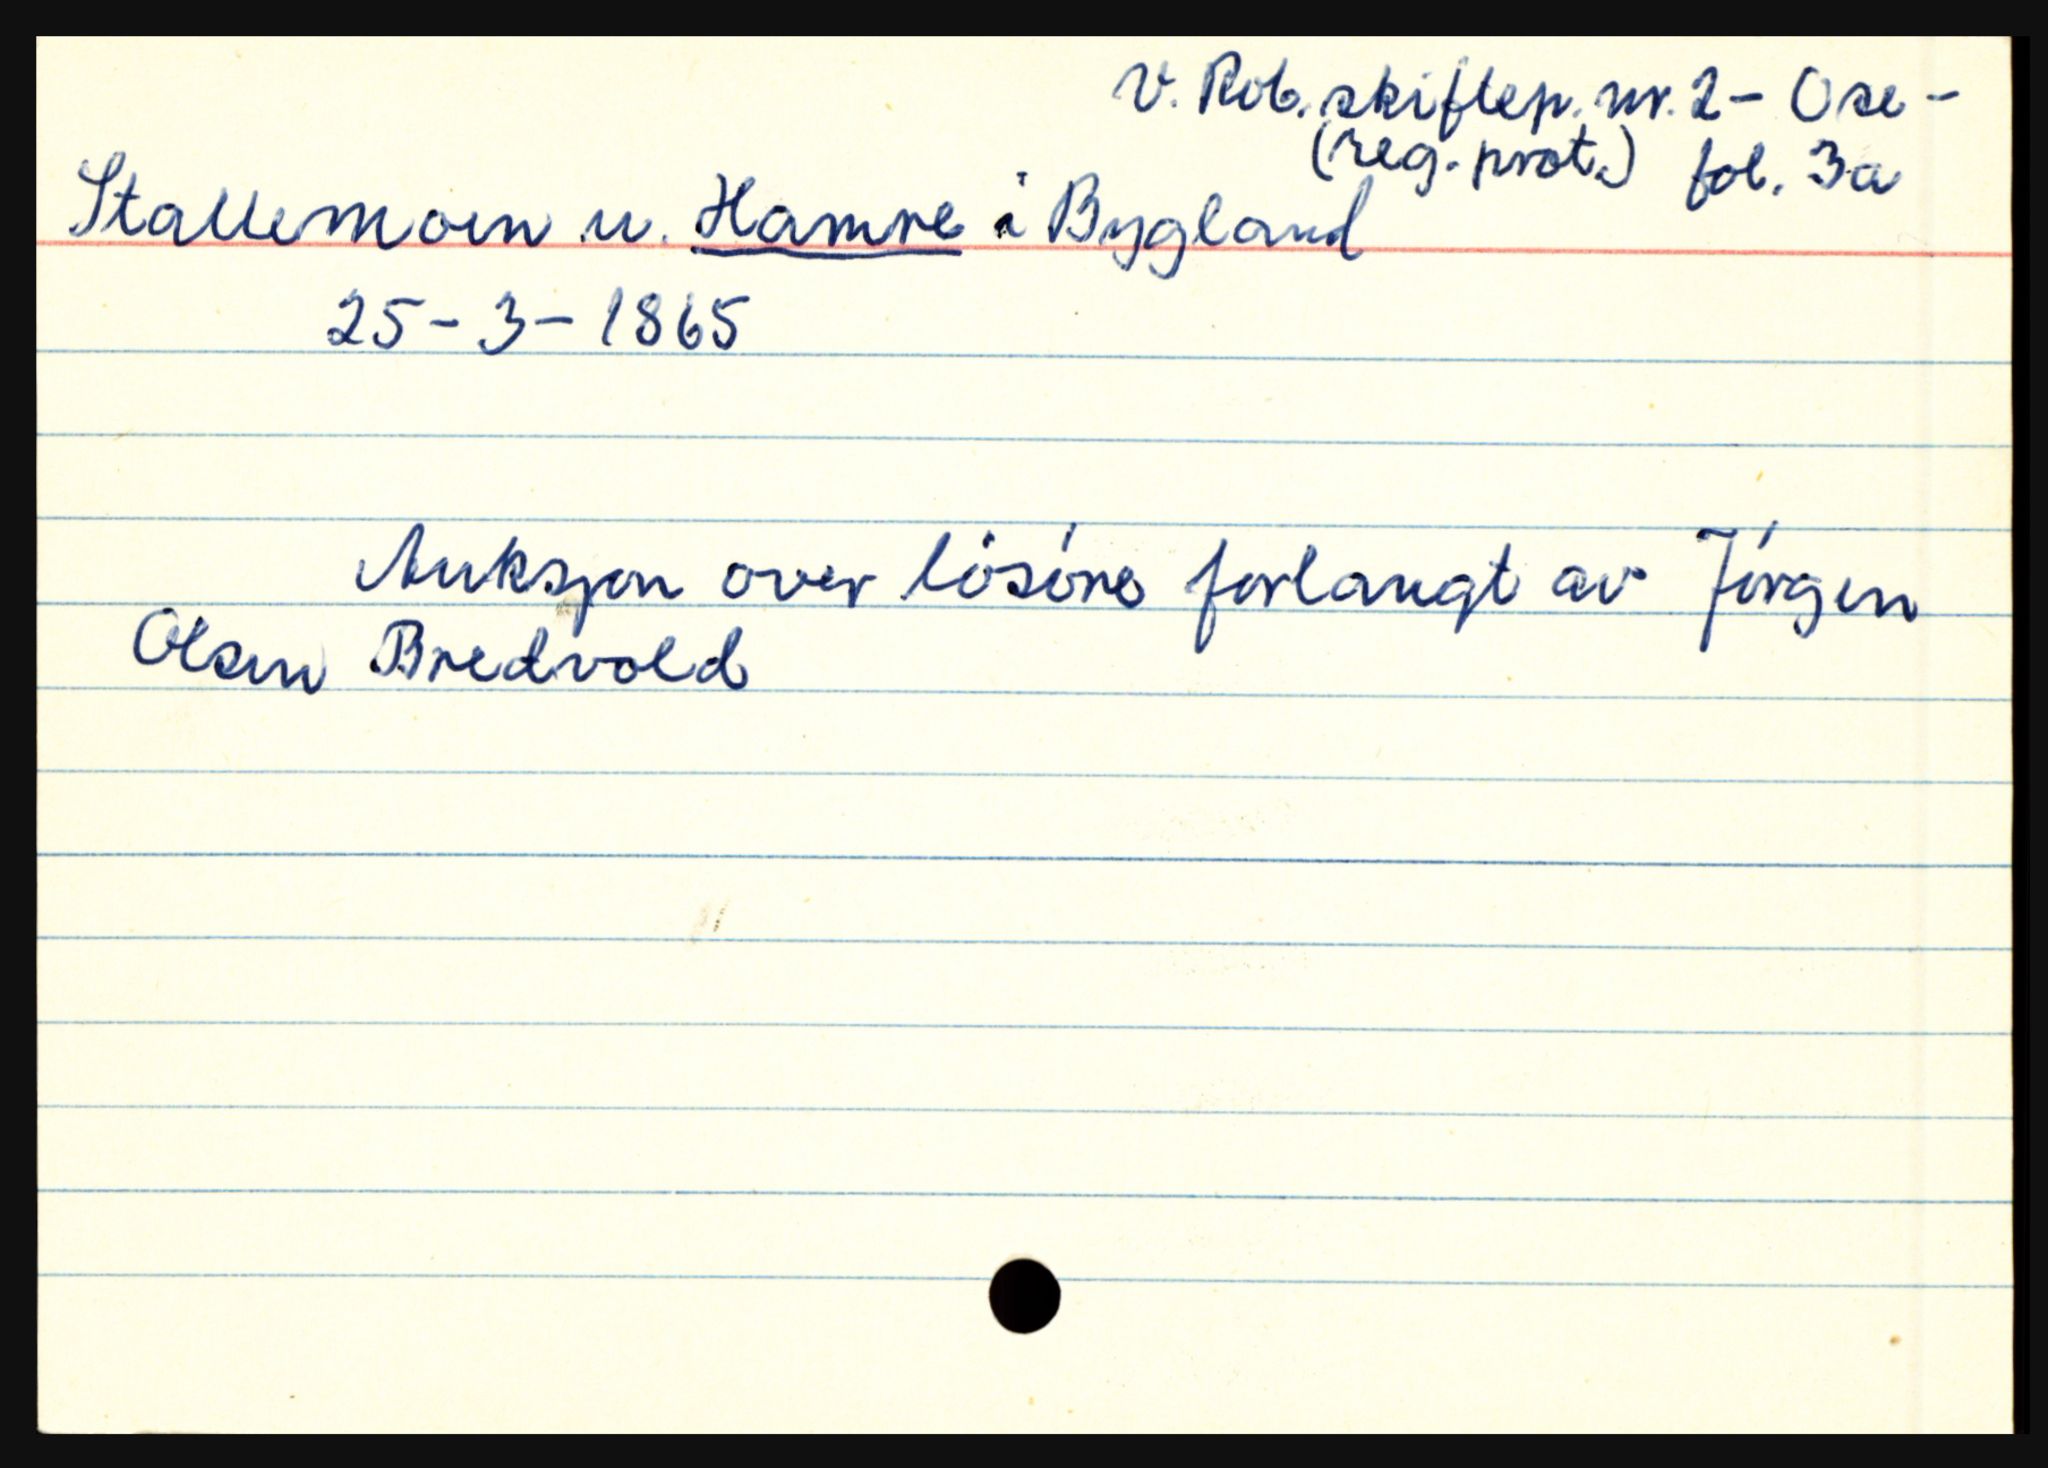 V. Rob. skiftep. nr. 2 - Ose -
(reg. prot.) fol. 3a
Stallemoen u. Hamre i Bygland
25-3-1865
Auksjon over lösöre forlangt av Jörgen
Olsen Bredvold